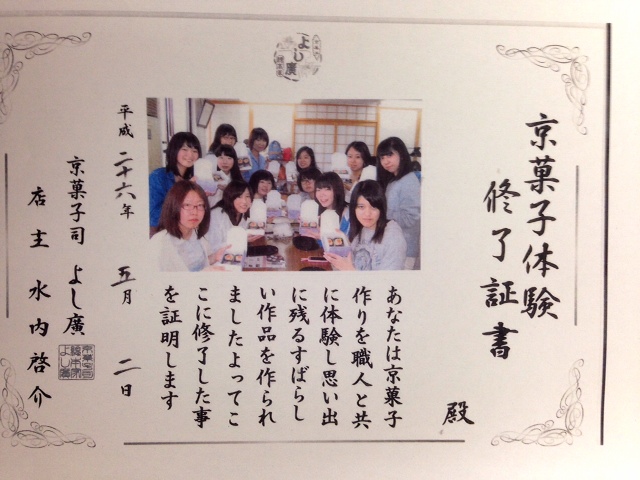 京菓子体験
修了証書
殿
あなたは京菓子
作りを職人と共
に体験し思い出
に残るすばらし
い作品を作られ
ましたよってこ
こに修了した事
を証明します
平成二十六年 五月 二日
京菓子司 よし廣
店主 水内啓介
よし廣